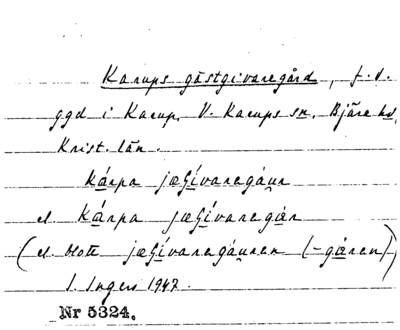 Karups gästgivaregård, f.d.
ggd i Karup, V. Karups sn, Bjäre hd,
Krist. län.
kárpa jæʃívaregáuɲ
el kárpa jæʃívaregár
(el. blott jæʃívaregáuren (-gáren))
I. Ingers 1947.
Nr 5324.